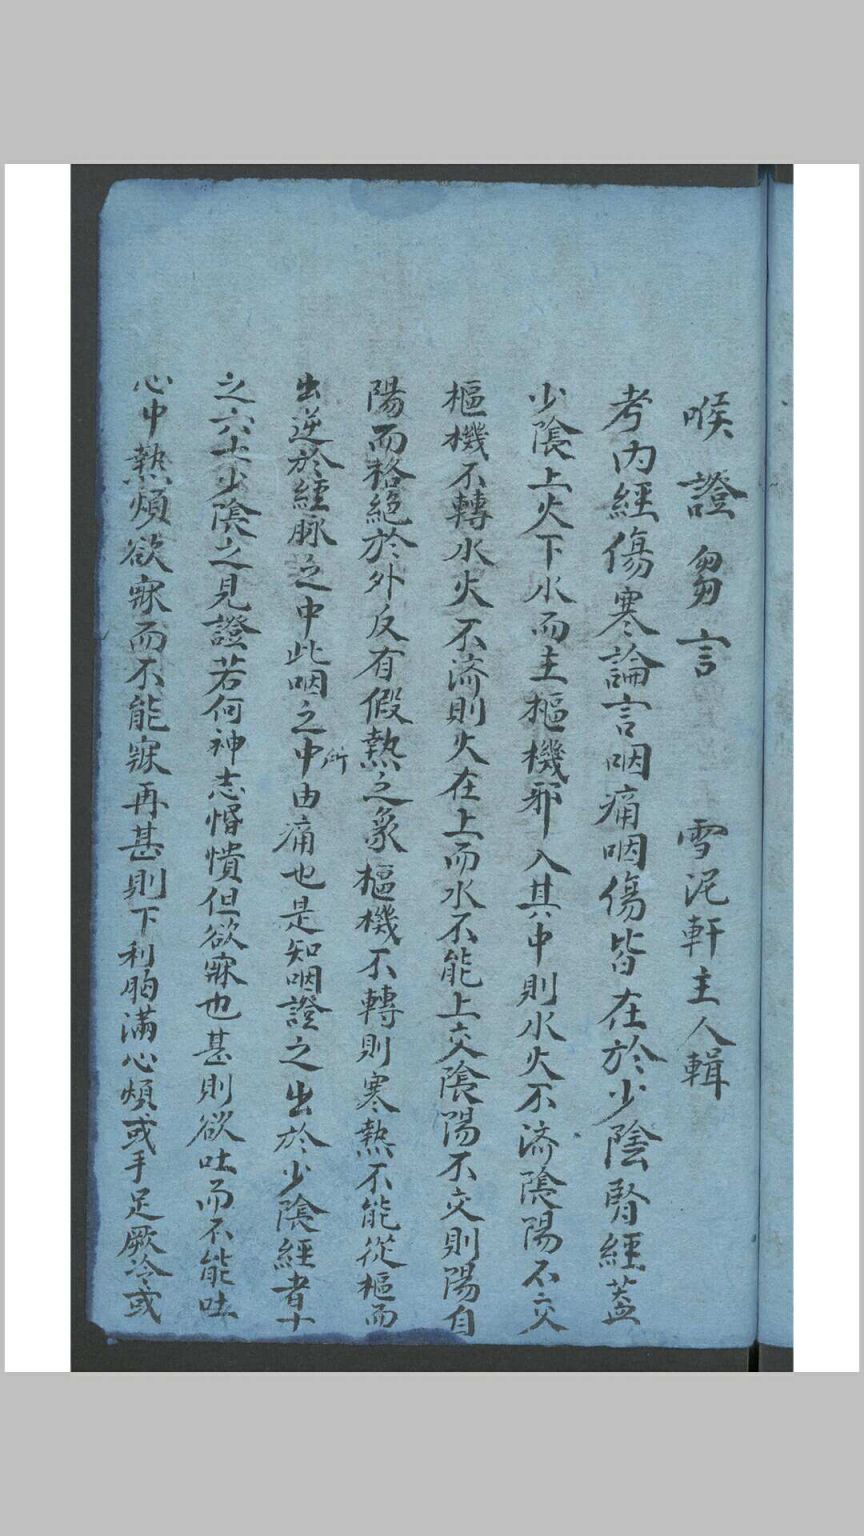 喉證芻言　雪泥軒主人輯
考内經傷寒論言咽痛咽傷皆在於少陰腎經蓋
少陰上火下水而主樞機邪入其中則水火不济陰陽不交
樞機不轉水火不济則火在上而水不能上交陰陽不交則陽自
陽而格絕於外反有假熱之象樞機不轉則寒熱不能從樞而
出逆於經脉之中此咽之中所由痛也是知咽證之出於少陰經者十
之六七少陰之見證若何神志惛憒但欲寐也甚則欲吐而不能吐
心中熱煩欲寐而不能寐再甚則下利胸滿心煩或手足厥冷或